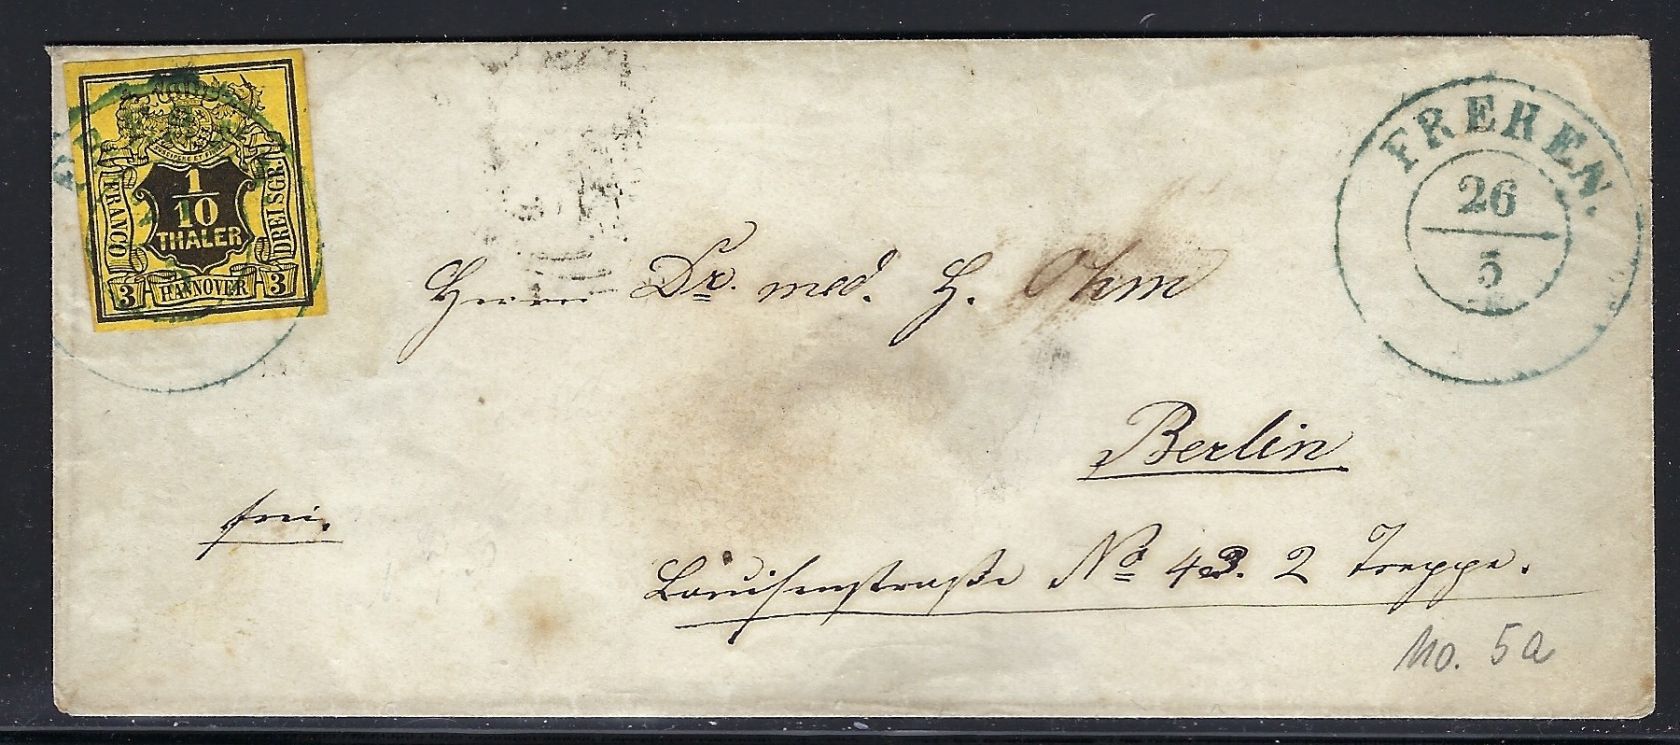 FRANCO
1/10
THALER
DREISGR.
3 HANNOVER 3
FREREN.
26
5
Herrn Dr. med. H. Ohm
Berlin
frei.
Louisenstraße No 43. 2 Treppe.
No. 5a